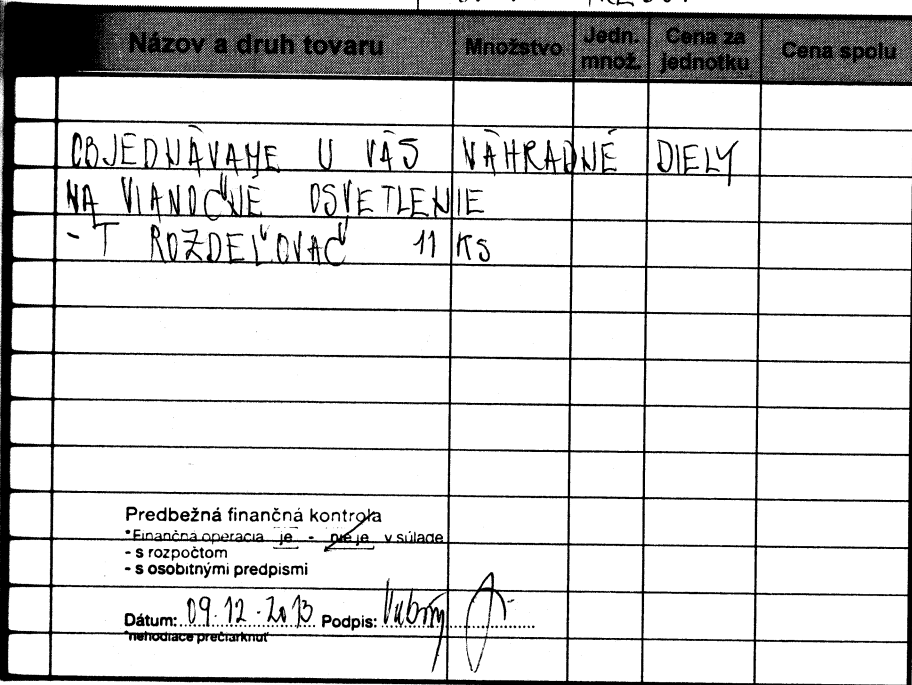 Názov a druh tovaru Množstvo Jedn. množ. Cena za jednotku Cena spolu
OBJEDNÁVAME U VÁS NÁHRADNÉ DIELY
NA VIANOČNÉ OSVETLENIE
- T ROZDEĽOVAČ 11 KS
Predbežná finančná kontrola
*Finančná operácia je - nie je v súlade
- s rozpočtom
- s osobitnými predpismi
Dátum: 09.12.2013 Podpis:
*nehodiace prečiarknuť